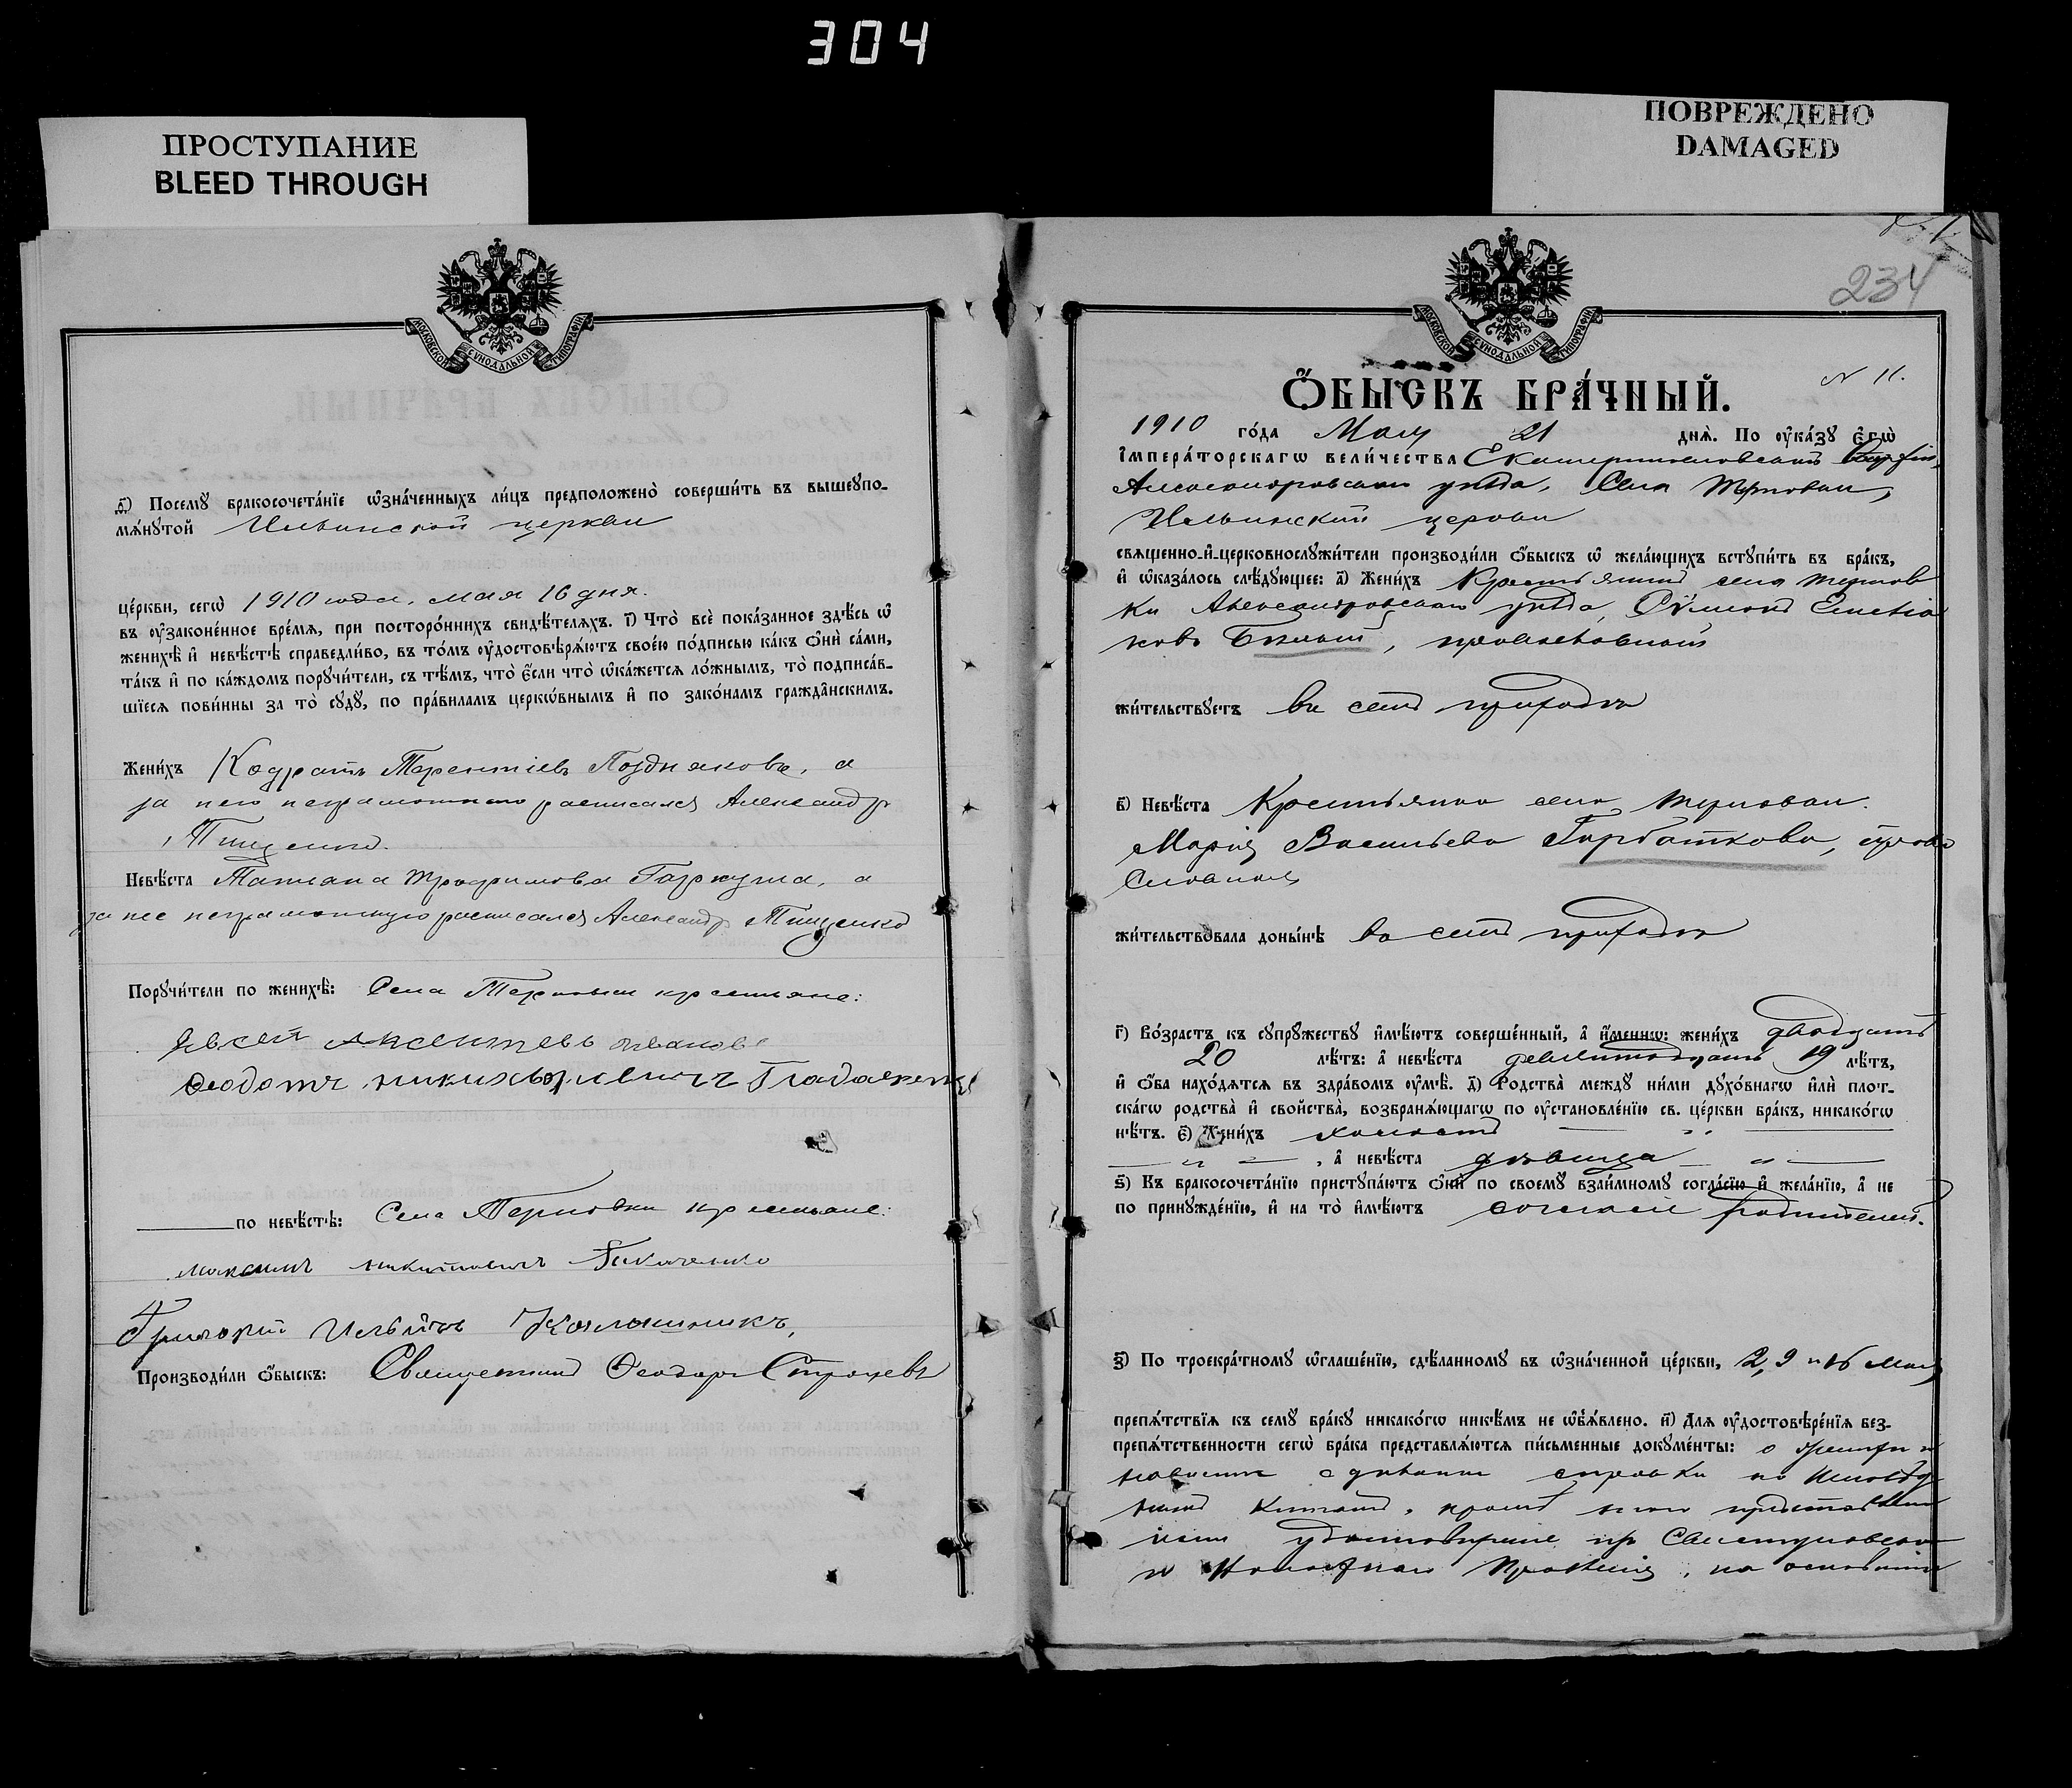 304
ПРОСТУПАНИЕ
BLEED THROUGH
ПОВРЕЖДЕНО
DAMAGED
МОСКОВСКОЙ СѴНОДАЛЬНОЙ ТИПОГРАФІИ
д҃і) Посемꙋ бракосочета́нїе ѡ҆зна́ченныхъ ли́цъ предположено̀ соверши́ть въ вышеꙋпо-
мѧ́нꙋтой Ильинской церкви
це́ркви, сегѡ̀ 1910 года, мая 16 дня.
въ ᲂу҆законе́нное вре́мѧ, при посторо́ннихъ свидѣ́телѧхъ. і҃) Что̀ всѐ пока́занное здѣ́сь ѡ҆
женихѣ̀ и҆ невѣ́стѣ справедли́во, въ то́мъ ᲂу҆достовѣрѧ́ютъ свое́ю по́дписью ка́къ ѻ҆нѝ са́ми,
та́къ и҆ по ка́ждомъ порꙋчи́тели, съ тѣ́мъ, что̀ є҆́сли что̀ ѡ҆ка́жетсѧ ло́жнымъ, то̀ подписа́в-
шїесѧ пови́нны за то̀ сꙋдꙋ̀, по пра́виламъ церко́внымъ и҆ по зако́намъ гражда́нскимъ.
Жени́хъ Кодратъ Терентіевъ Поздняковъ, а
за него неграмотнаго расписался Александръ
Тищенко.
Невѣ́ста Татіана Трофимова Гаркуша, а
за нее неграмотную расписался Александръ Тищенко
Порꙋчи́тели по женихѣ̀: Села Терновки крестьяне:
Евсей Аксентьевъ Ивановъ
Ѳеодотъ Никифоровичъ
по невѣ́стѣ: Села Терновки крестьяне:
Максимъ Никитовичъ
Григорій Ильичъ
Производи́ли ѻ҆́быскъ: Священникъ Ѳеодоръ
234
МОСКОВСКОЙ СѴНОДАЛЬНОЙ ТИПОГРАФІИ
N 11.
Ѻ҆́БЫСКЪ БРА́ЧНЫЙ.
1910 го́да Мая 21 днѧ̀. По ᲂу҆ка́зꙋ є҆гѡ̀
і҆мпера́торскагѡ вели́чества Екатеринославской
Александровскаго уѣзда, Села Терновки,
Ильинской церкви
свѧще́нно-и҆-церковнослꙋжи́тели производи́ли ѻ҆́быскъ ѡ҆ жела́ющихъ встꙋпи́ть въ бра́къ,
и҆ ѡ҆каза́лось слѣ́дꙋющее: а҃) Жени́хъ Крестьянинъ села Тернов
ки Александровскаго уѣзда,
ковъ Бѣлый, православный
жи́тельствꙋетъ въ семъ приходѣ
в҃) Невѣ́ста Крестьянка села Терновки.
Марія Васильева Горбаткова, право
славная
жи́тельствовала доны́нѣ въ семъ приходѣ
г҃) Во́зрастъ къ сꙋпрꙋ́жествꙋ и҆мѣ́ютъ соверше́нный, а҆ и҆́меннѡ: жени́хъ двадцать
20 лѣ́тъ: а҆ невѣ́ста девятнадцать 19 лѣ́тъ,
и҆ ѻ҆́ба нахо́дѧтсѧ въ здра́вомъ ᲂу҆мѣ̀. д҃) Родства̀ междꙋ ни́ми дꙋхо́внагѡ и҆лѝ плот-
ска́гѡ родства̀ и҆ сво́йства, возбранѧ́ющагѡ по ᲂу҆становле́нїю св. це́ркви бра́къ, никако́гѡ
нѣ́тъ. є҃) Жени́хъ холостъ
, а҆ невѣ́ста дѣвица
ѕ҃) Къ бракосочета́нїю пристꙋпа́ютъ ѻ҆нѝ по своемꙋ̀ взаи́мномꙋ согла́сїю и҆ жела́нїю, а҆ не
по принꙋжде́нїю, и҆ на то̀ и҆мѣ́ютъ согласіе родителей.
з҃) По троекра́тномꙋ ѡ҆глаше́нїю, сдѣ́ланномꙋ въ ѡ҆зна́ченной це́ркви, 2, 9 и 16 Мая
препѧ́тствїѧ къ семꙋ̀ бра́кꙋ никако́гѡ никѣ́мъ не ѡ҆б̾ѧ́влено. и҃) Длѧ ᲂу҆достовѣре́нїѧ без-
препѧ́тственности сегѡ̀ бра́ка представлѧ́ютсѧ пи́сьменные докꙋме́нты:
справки по
книгамъ, кромѣ того представлен